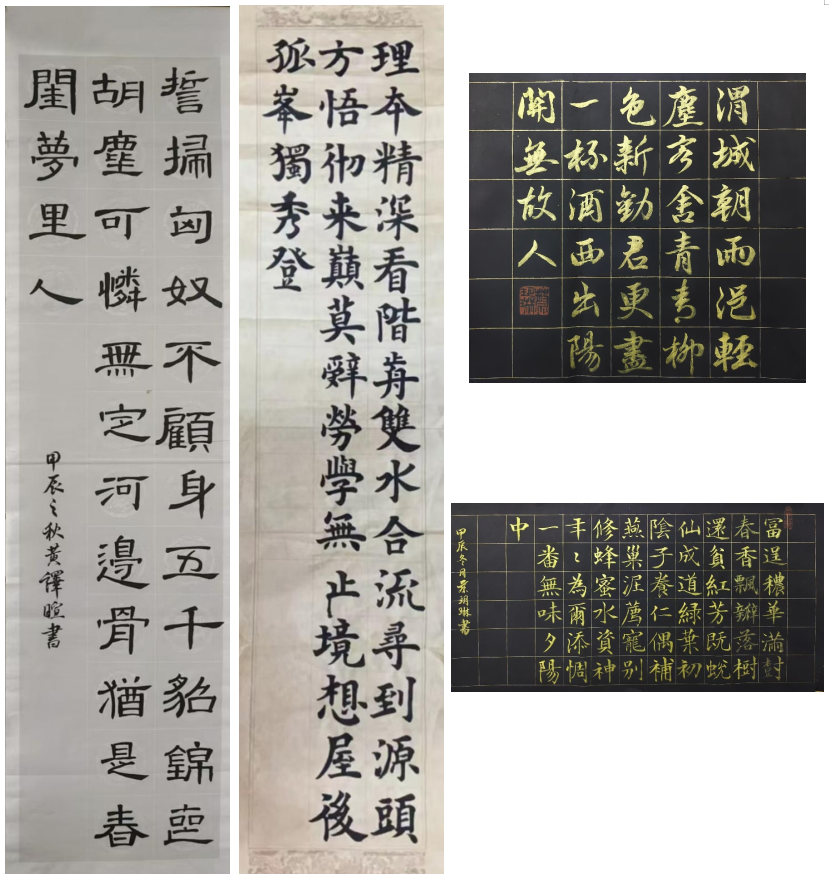 誓掃匈奴不顧身五千貂錦喪
胡塵可憐無定河邊骨猶是春
閨夢里人
甲辰之秋黄譯暄書
理夲精深看階前雙水合流尋到源頭
方悟彻来巔莫辭勞學無止境想屋後
孤峯獨秀登
渭城朝雨浥輕
塵客舍青青柳
色新勸君更盡
一杯酒西出陽
關無故人
富逞穠華滿尌
春香飄辦落樹
還貧紅芳既蜕
仙成道緑葉初
陰子養仁偶補
燕巢泥薦寵别
修蜂蜜水資神
年〻為爾添惆
一番無味夕陽
中
甲辰冬月 書